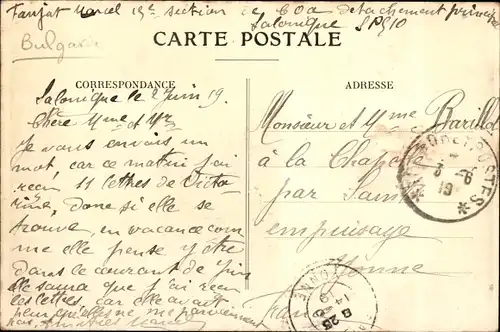 Farjat Marcel 19e section de COA détachement
Salonique SP 510
Bulgarie
CARTE POSTALE
CORRESPONDANCE
ADRESSE
Salonique le 2 Juin 19.
Chère Mme et Mr
Je vous envois un
mot, car ce matin j'ai
reçu 11 lettres de Victo-
rine, Donc si elle se
trouve, en vacance com
me elle pense y être
dans le courant de Juin
elle saura que j'ai reçu
les lettres, car elle avait
peur qu'elles ne me parviennent
pas. Amitiés Marcel
Monsieur et Mme Barillot
à la Chapelle
par Saint
en puisaye
Yonne
France
POSTES
3 - 6
19
YONNE